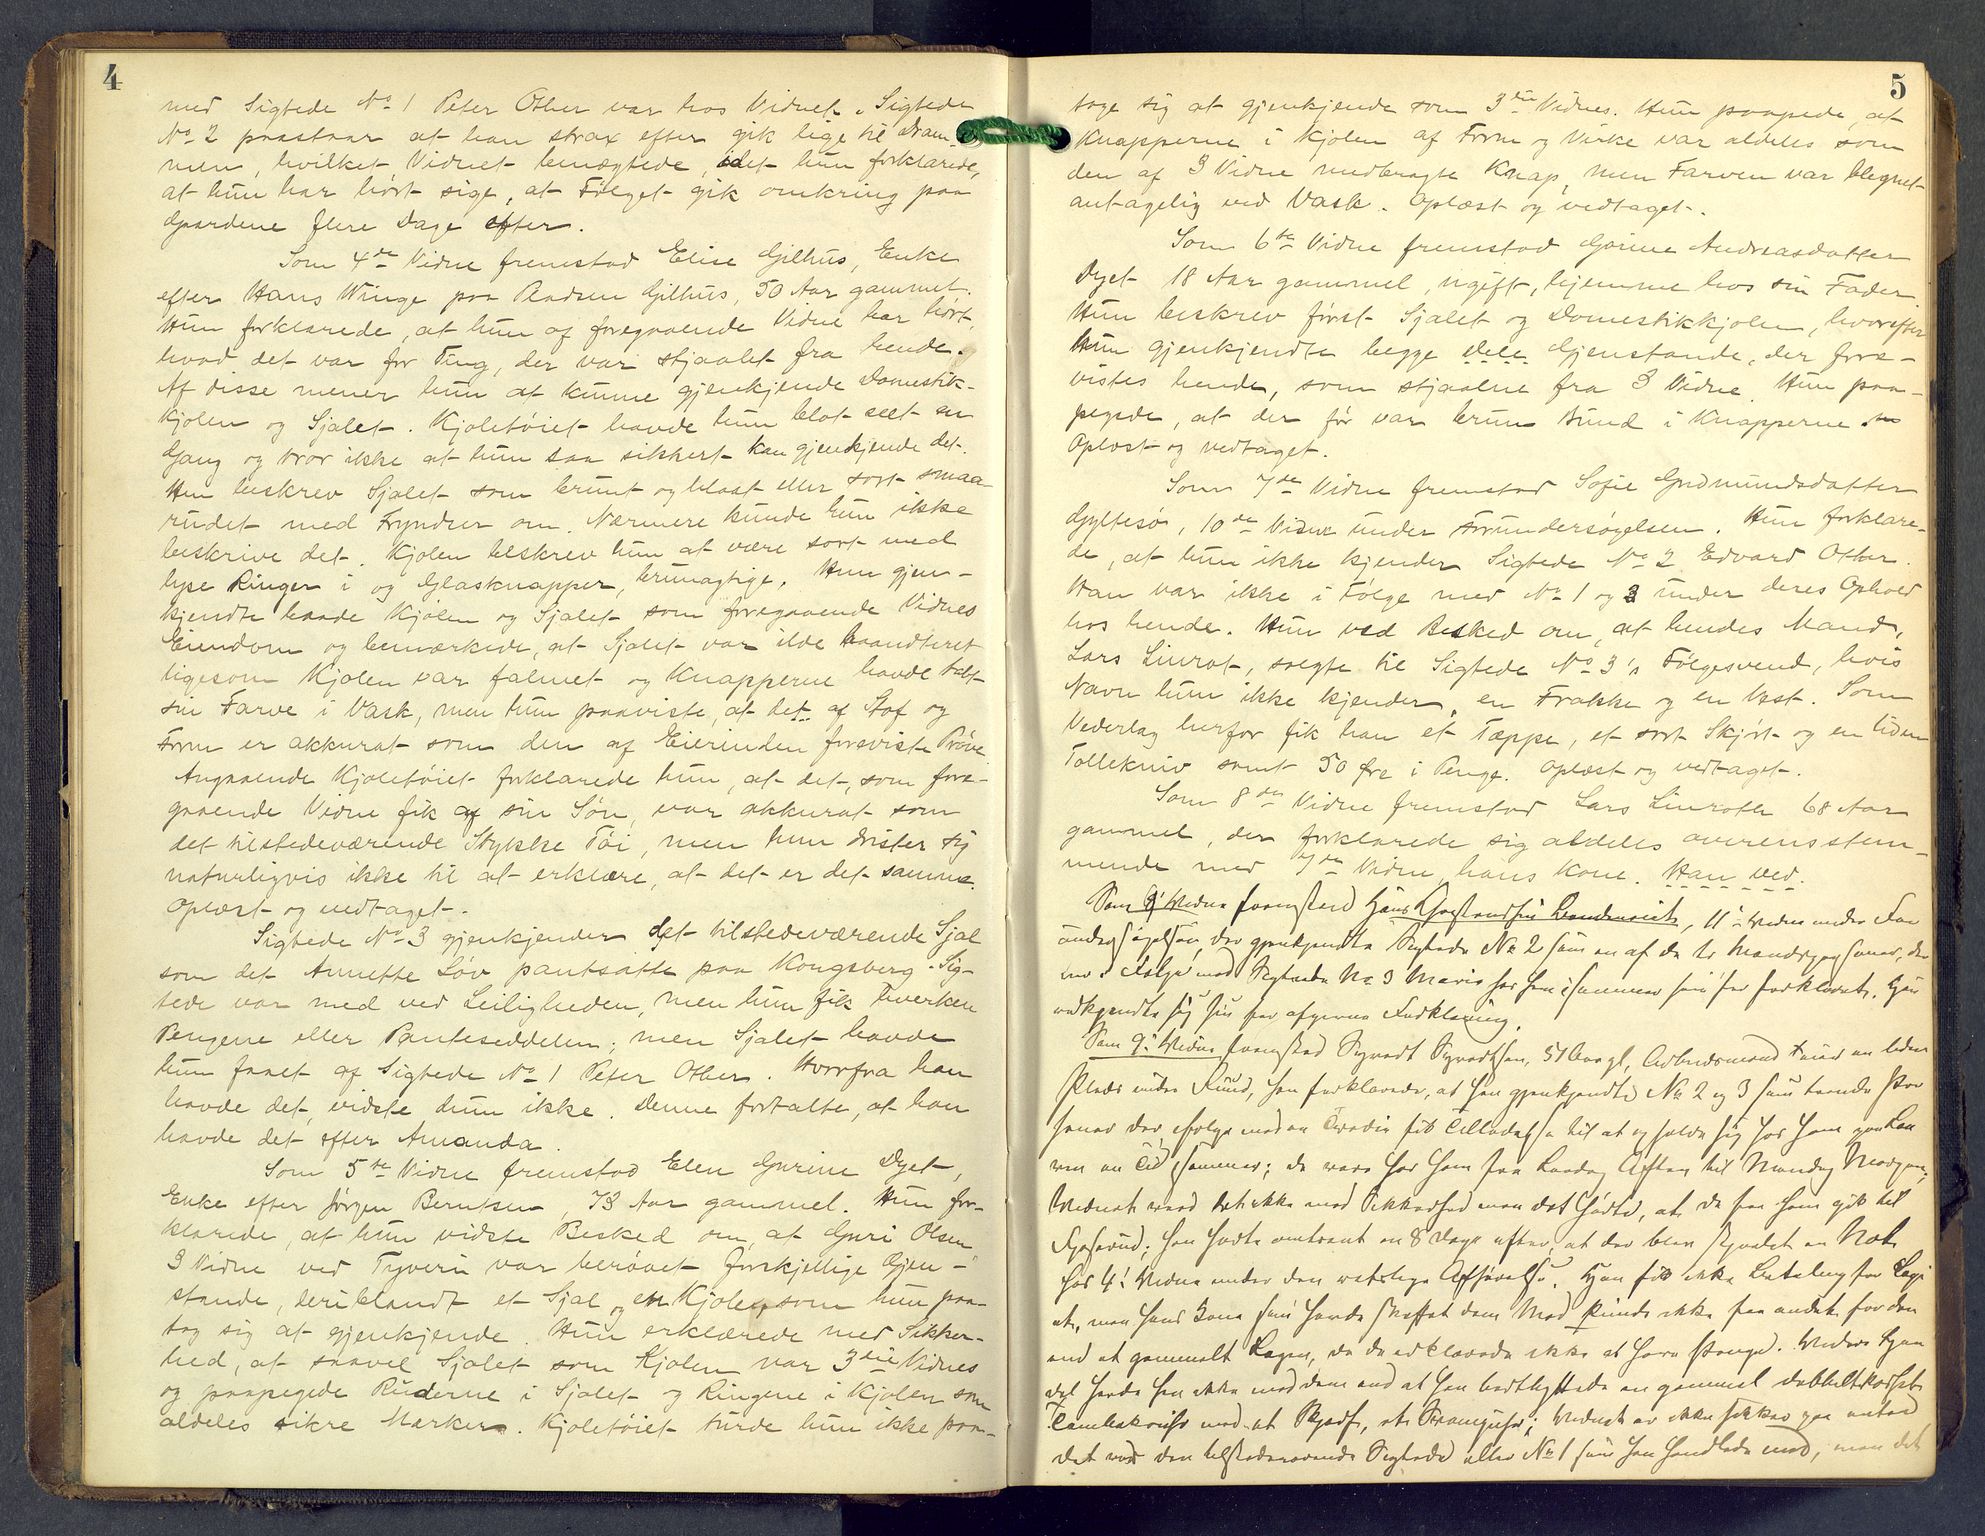 4
med Sigtede No 1 Peter Olsen var hos Vidnet. Sigtede
No 2 paastaar at han strax efter gik lige til Dram-
men, hvilket Vidnet benægtede, idet hun forklarede,
at hun har hørt sige, at Følget gik omkring paa
Gaardene flere Dage efter.
Som 4de Vidne fremstod Elise Gilhus, Enke
efter Hans Winge paa Gilhus, 50 Aar gammel.
Hun forklarede, at hun af foregaaende Vidne har hørt,
hvad det var for Ting, der var stjaalet fra hende.
Af disse mener hun at kunne gjenkjende Domestik-
kjolen og Sjalet. Kjoletøiet havde hun blot seet en
Gang og tror ikke at hun saa sikkert kan gjenkjende det.
Hun beskrev Sjalet som brunt og blaat eller sort smaa-
rudet med Fryndser om. Nærmere kunde hun ikke
beskrive det. Kjolen beskrev hun at være sort med
lyse Ringer i og Glasknapper, brunagtige. Hun gjen-
kjendte baade Kjolen og Sjalet som foregaaende Vidnes
Eiendom og bemærkede, at Sjalet var ilde haandteret
ligesom Kjolen var falmet og Knapperne havde tabt
sin Farve i Vask, men hun paaviste, at det af Stof og
Form er akkurat som den af Eierinden foreviste Prøve
Angaaende Kjoletøiet forklarede hun, at det, som fore-
gaaende Vidne fik af sin Søn, var akkurat som
det tilstedeværende Stykke Tøi, men hun drister sig
naturligvis ikke til at erklære, at det er det samme.
Oplæst og vedtaget.
Sigtede No 3 gjenkjender det tilstedeværende Sjal
som det Annette Løv pantsatte paa Kongsberg. Sig-
tede var med ved Leiligheden, men hun fik hverken
Pengene eller Panteseddelen; men Sjalet havde
hun faaet af Sigtede No 1 Peter Olsen. Hvorfra han
havde det, vidste hun ikke. Denne fortalte, at han
havde det efter Amanda.
Som 5te Vidne fremstod Elen Gurine Dyet,
Enke efter Jørgen Berntsen, 73 Aar gammel. Hun for-
klarede, at hun vidste Besked om, at Guri Olsen,
3 Vidne ved Tyveri var berøvet forskjellige Gjen-
stande, deriblandt et Sjal og en Kjole, som hun paa-
tog sig at gjenkjende. Hun erklærede med Sikker-
hed, at saavel Sjalet som Kjolen var 3die Vidnes
og paapegede Ruderne i Sjalet og Ringene i Kjolen som
aldeles sikre Mærker. Kjoletøiet turde hun ikke paa-
5
tage sig at gjenkjende som 3die Vidnes. Hun paapegede, at
Knapperne i Kjolen af Form og Virke var aldeles som
den af 3 Vidne medbragte Knap, men Farven var blegnet
antagelig ved Vask. Oplæst og vedtaget.
Som 6te Vidne fremstod Gorine Andreasdatter
Dyet 18 Aar gammel, ugift, hjemme hos sin Fader
Hun beskrev først Sjalet og Domestikkjolen, hvorefter
hun gjenkjendte begge Dele Gjenstande, der fore-
vistes hende, som stjaalne fra 3 Vidne. Hun paa-
pegede, at der før var brun Bund i Knapperne.
Oplæst og vedtaget.
Som 7de Vidne fremstod Sofie Gudmundsdatter
Gyltesø, 10de Vidne under Forundersøgelsen. Hun forklare-
de, at hun ikke kjender Sigtede No 2 Edvard Otter.
Han var ikke i Følge med No 1 og 3 under deres Ophold
hos hende. Hun ved Besked om, at hendes Mand,
Lars Linrot, solgte til Sigtede No 3's Følgesvend, hvis
Navn hun ikke kjender, en Frakke og en Vest. Som
Vederlag herfor fik han et Tæppe, et sort Skjørt og en liden
Tollekniv samt 50 Øre i Penge. Oplæst og vedtaget.
Som 8de Vidne fremstod Lars Linroth 68 Aar
gammel, der forklarede sig aldeles overensstem-
mende med 7de Vidne, hans Kone. Han ved.
Som 9' Vidne fremstod Hans 11' Vidne under For
undersøgelsen, der gjenkjendte Sigtede No 2 som en af de to Mandspersoner, der
var i Følge med Sigtede No 3 Marie hos ham i Sommer som før forklaret. Han
vedkjendte sig sin før afgivne Forklaring.
Som 9' Vidne fremstod Syvert Syvertsen, 51 Aar gl, Arbeidsmand paa en liden
Plads under Ruud, han forklarede, at han gjenkjendte No 2 og 3 som tvende Per
soner der i Følge med en Tredie fik Tilladelse til at opholde sig hos ham paa Laa
ven en Tid i Sommer; de vare hos ham fra Lørdag Aften til Mandag Morgen;
Vidnet ved det ikke med Sikkerhed men det hørte, at de fra ham gik til
han hørte omtrent en 8 Dage efter, at der blev stjaalet en Nat
hos 4' Vidne under den Han fik ikke Betaling for Logi
et, men hans Kone som havde skaffet dem Mad kunde ikke faa andet for den
end et gammelt Lagen, da de erklærede ikke at have Penge. Videre Han
del havde han ikke med dem end at han bortbyttede en gammel
med et Skjørt, et Vidnet er ikke sikker paa enten
det var den tilstedeværende Sigtede eller No 1 som han handlede med, men det